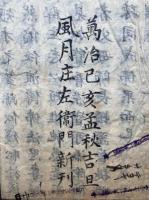 萬治己亥孟秋吉旦
風月庄左衞門新刊